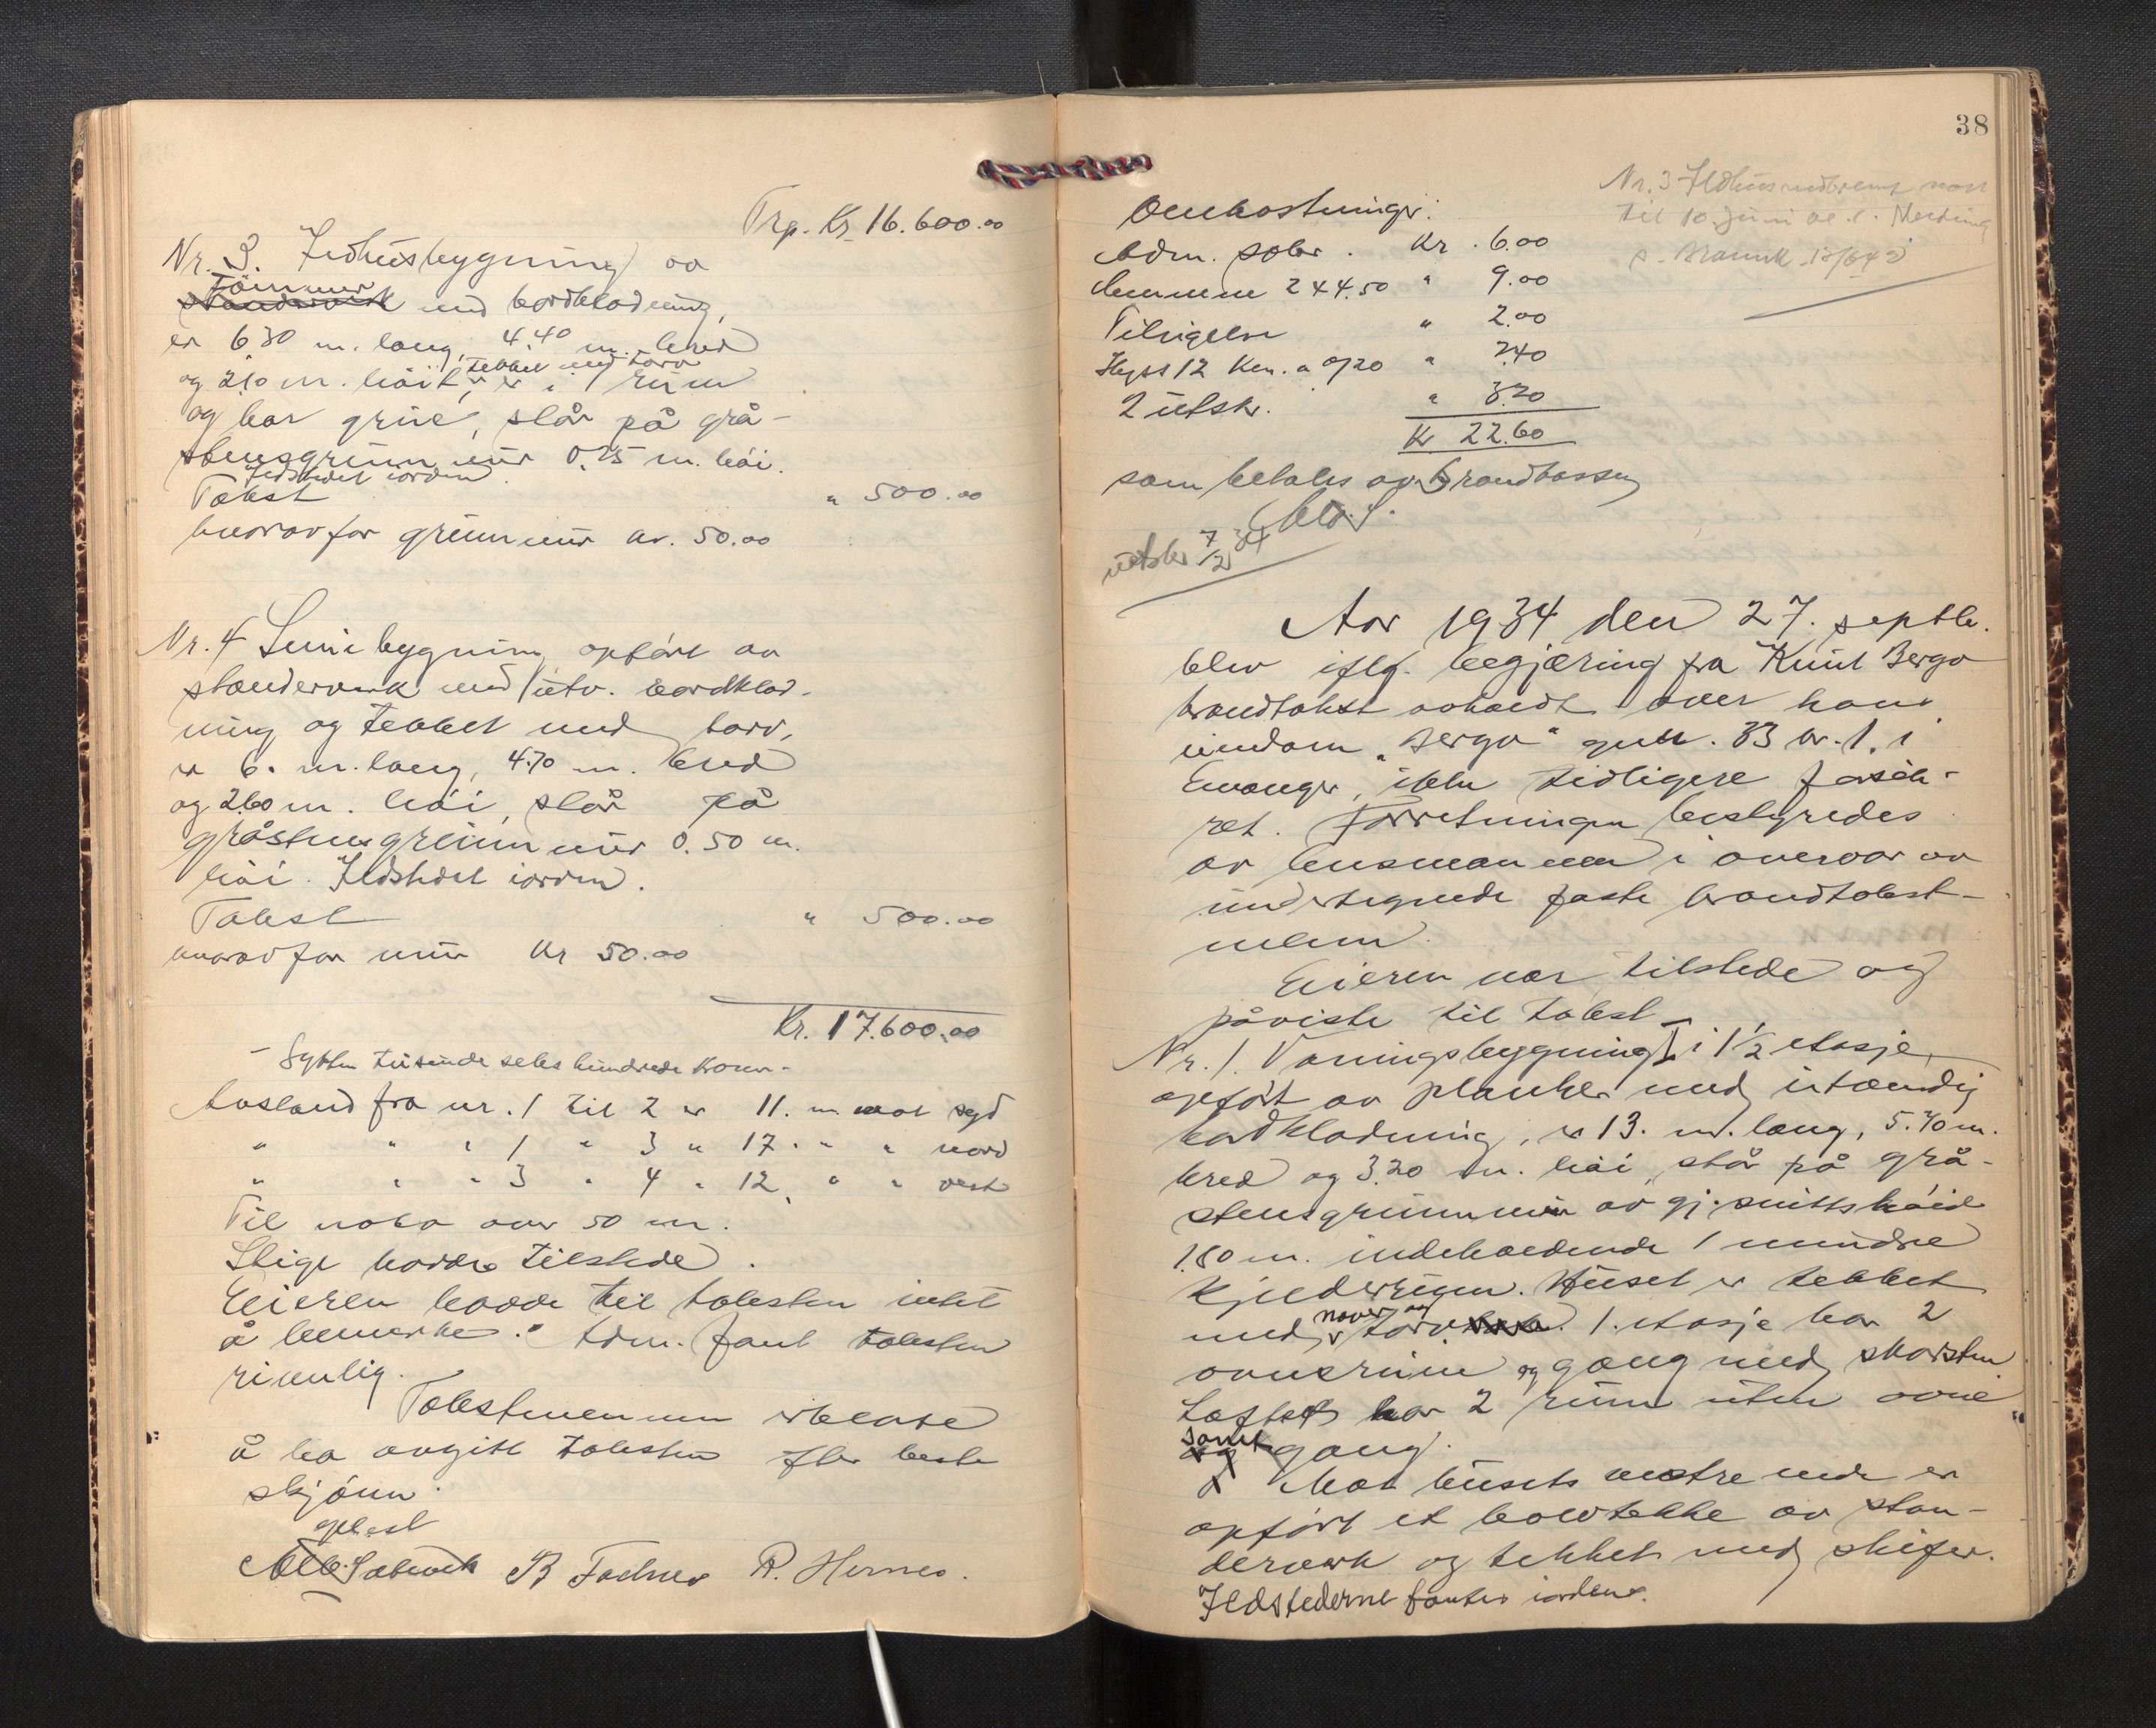 Trp. Kr. 16.600.00
Nr. 3. Ildhusbygning av
Tømmer
standerverk med bordkledning,
er 6.30 m. lang, 4.40 m. bred
tekket med torv
og 2.10 m. höit, er i 1 rum
og har grue, står på grå-
stensgrunnmur 0.25 m. höi.
Ildstedet iorden
Takst " 500.00
hvorav for grunnmur kr. 50.00
Nr. 4 bygning opført av
standerverk med utv. bordkled-
ning og tekket med torv,
er 6. m. lang, 4.70 m. bred
og 2.60 m. höi, står på
gråstensgrunnmur 0.50 m.
höi. Ildstedet iorden.
Takst " 500.00
hvorav for mur Kr 50.00
Kr. 17.600.00
- Sytten tusinde seks hundrede kroner -
Avstand fra nr. 1 til 2 er 11. m mot syd
" " " 1 " 3 " 17 " " " nord
" " " 3 " 4 " 12 " " " vest
Til nabo over 50 m.
Stige havdes tilstede.
Eieren havde til taksten intet
å bemerke. Adm. fant taksten
rimelig.
Takstmennene erklærte
å ha avgitt taksten efter beste
skjønn.
oplest
R. Hernes.
38
Nr. 3 Ildhus nedbrent natt
til 10. juni
Omkostninger:
Adm. salær. Kr. 6.00
Mennene 2 x 4.50 " 9.00
Tilsigelse " 2.00
Skyss 12 km. a 0/20 " 2.40
2 utskr. " 3.20
Kr 22.60
som betales av Brandkassen
utskr 7/12 34
Aar 1934 den 27. septbr.
blev iflg. begjæring fra Knut Bergo
brandtakst avholdt over hans
eiendom "Bergo" gnr. 33 br. 1. i
Evanger, ikke tidligere forsik-
ret. Forretningen bestyredes
av lensmannen i overvær av
undertegnede faste brandtakst-
menn.
Eieren var tilstede og
påviste til takst
Nr. 1. Våningsbygning i 1 1/2 etasje,
opført av planker med utvendig
bordkledning, er 13. m. lang, 5.70 m.
bred og 3.20 m. höi, står på grå-
stensgrunnmur av gj. snittshöide
1.80 m. indeholdende 1 mindre
kjelderrum. Huset er tekket
med never og torv. 1. etasje har 2
ovnsrum og gang med skorsten
Loftet har 2 rum uten ovne
samt gang.
Mot husets vestre ende er
opført et halvtekke av stan-
derverk og tekket med skifer.
Ildstederne fantes iorden.